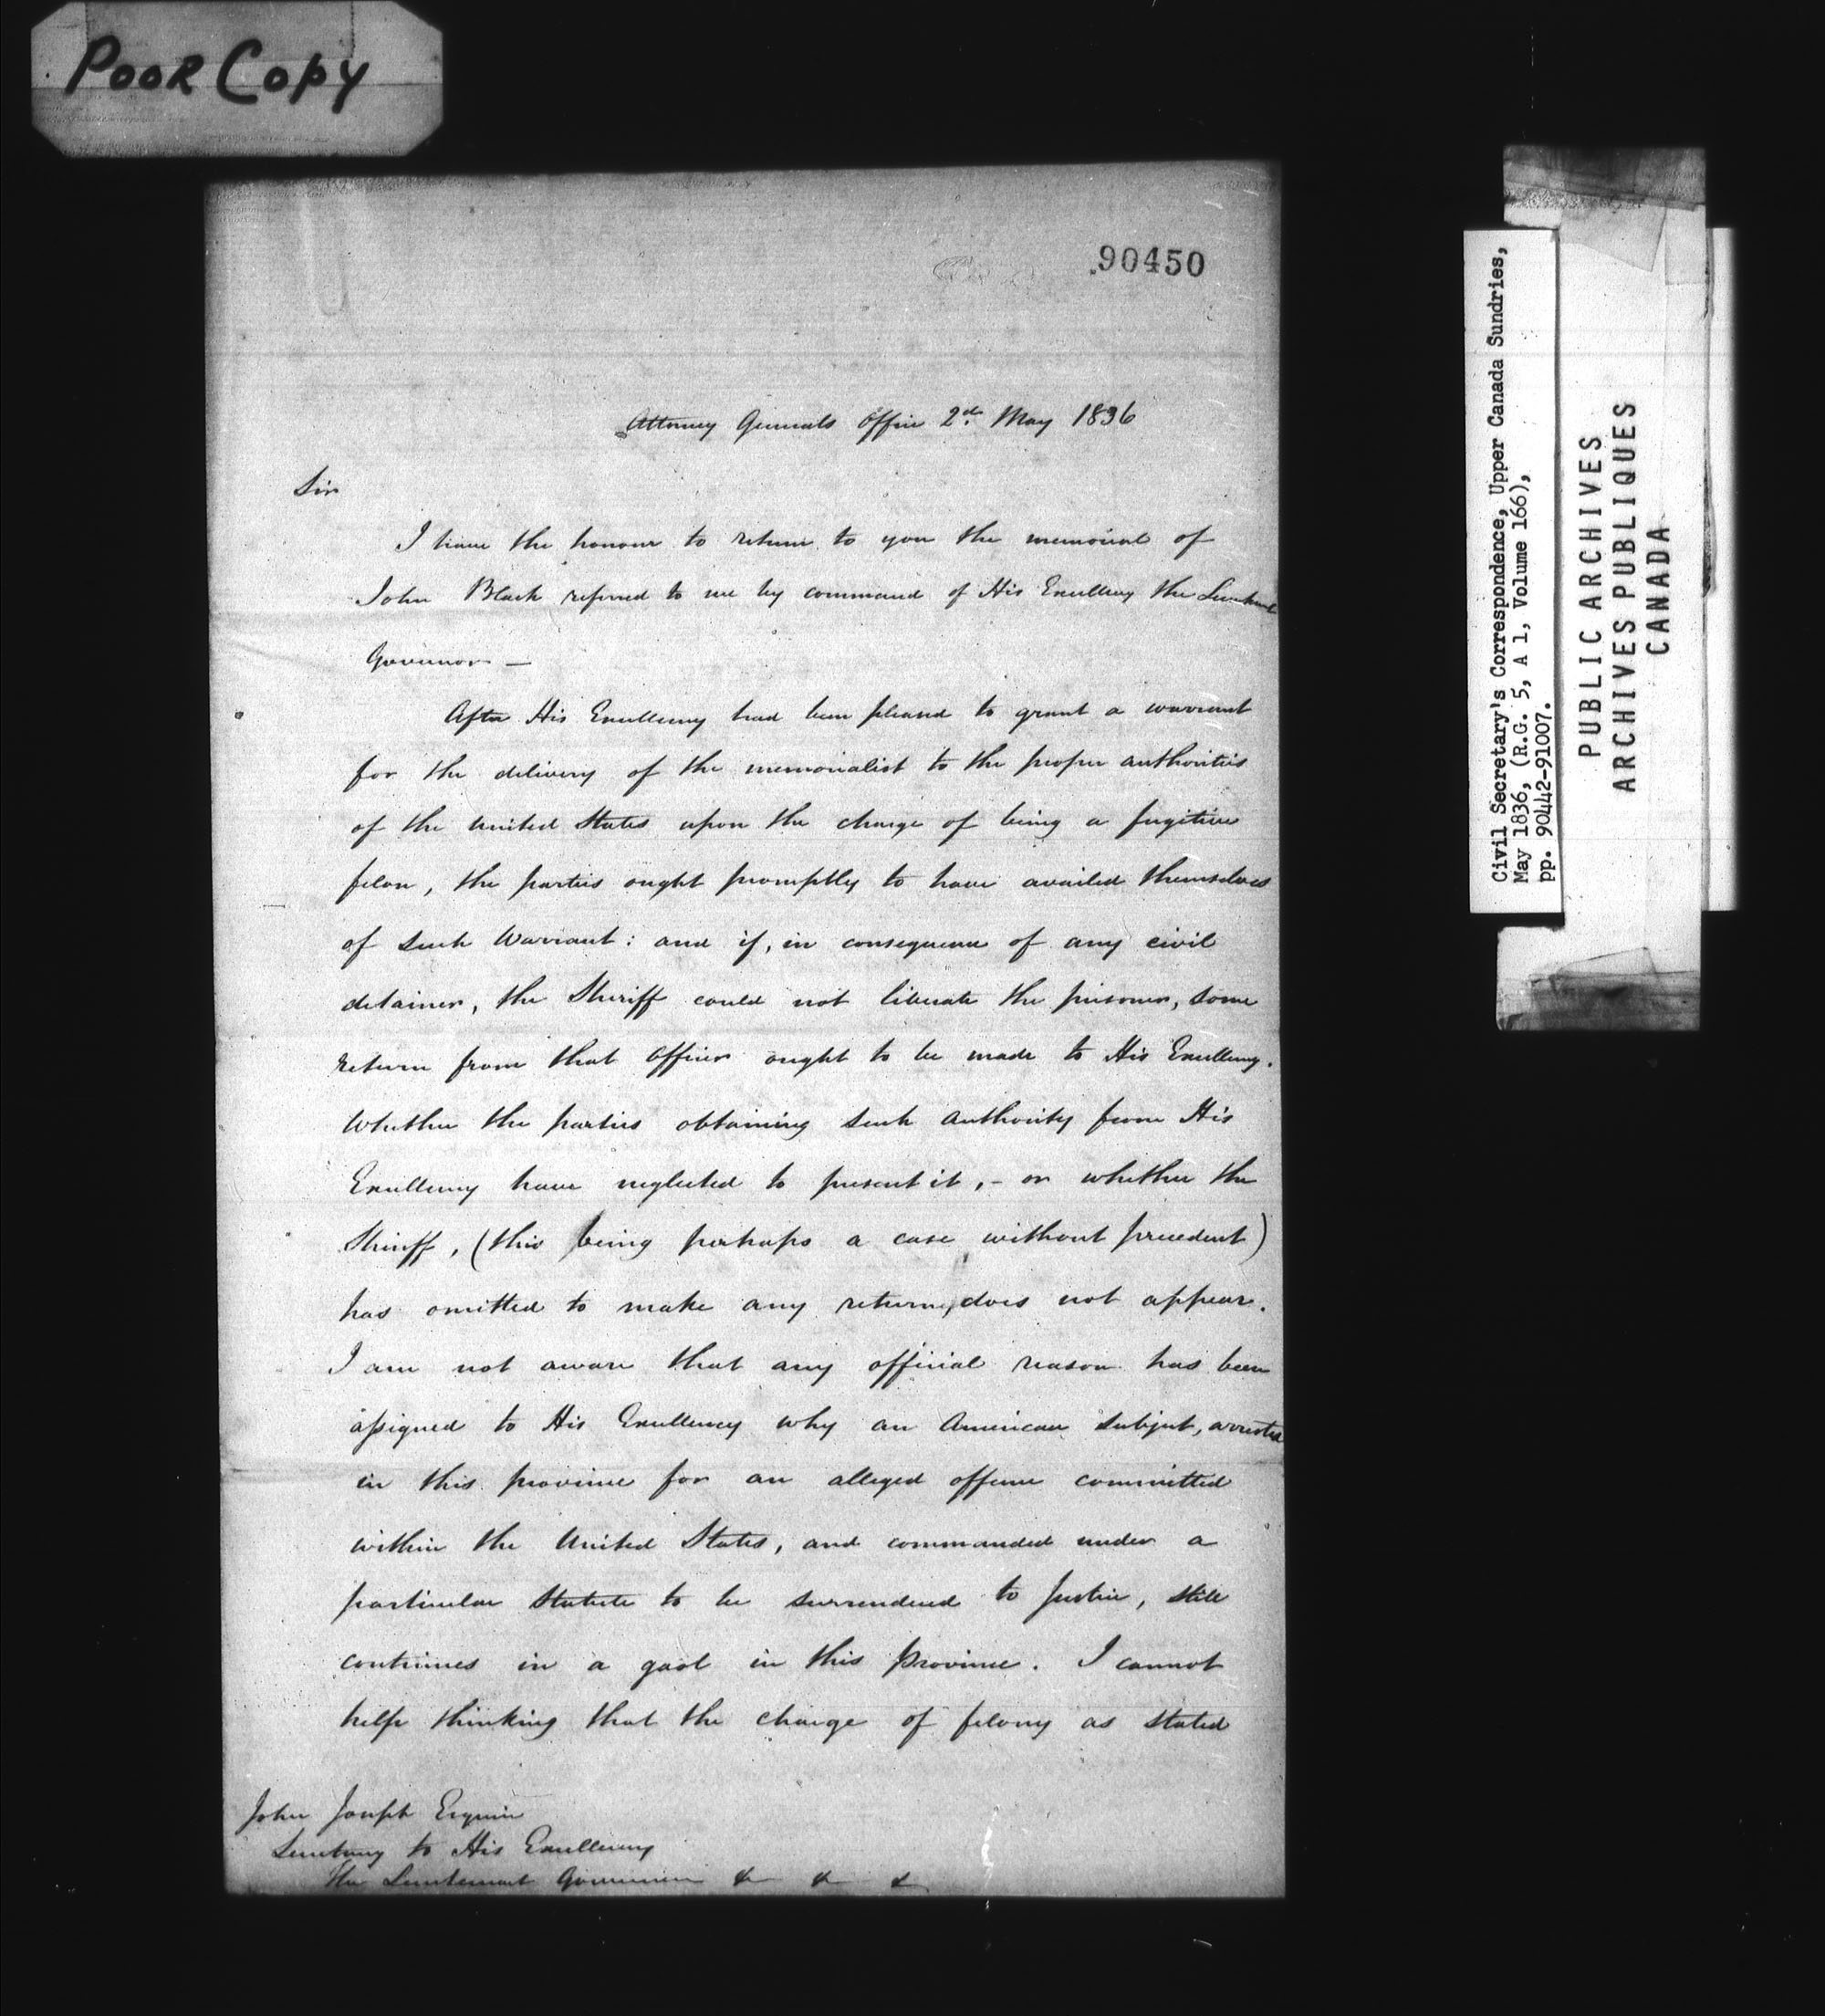 Poor Copy
90450
Attorney Generals Office 2d. May 1836
Sir
I have the honour to return to you the memorial of
John Black referred to me by command of His Excellency the Lieutenant
Governor —
After His Excellency had been pleased to grant a warrant
for the delivery of the memorialist to the proper authorities
of the United States upon the charge of being a fugitive
felon, the parties ought promptly to have availed themselves
of such Warrant: and if, in consequence of any civil
detainer, the Sheriff could not liberate the prisoner, some
return from that Officer ought to be made to His Excellency.
Whether the parties obtaining such authority from His
Excellency have neglected to present it, - or whether the
Sheriff, (this being perhaps a case without precedent)
has omitted to make any return, does not appear.
I am not aware that any official reason has been
assigned to His Excellency why an American subject, arrested
in this province for an alleged offence committed
within the United States, and commanded under a
particular Statute to be surrendered to Justice, still
continues in a gaol in this Province. I cannot
help thinking that the charge of felony as stated
John Joseph Esquire
Secretary to His Excellency
The Lieutenant Governor & & &
Civil Secretary's Correspondence, Upper Canada Sundries,
May 1836, (R.G. 5, A 1, Volume 166),
pp. 90442-91007.
PUBLIC ARCHIVES
ARCHIVES PUBLIQUES
CANADA